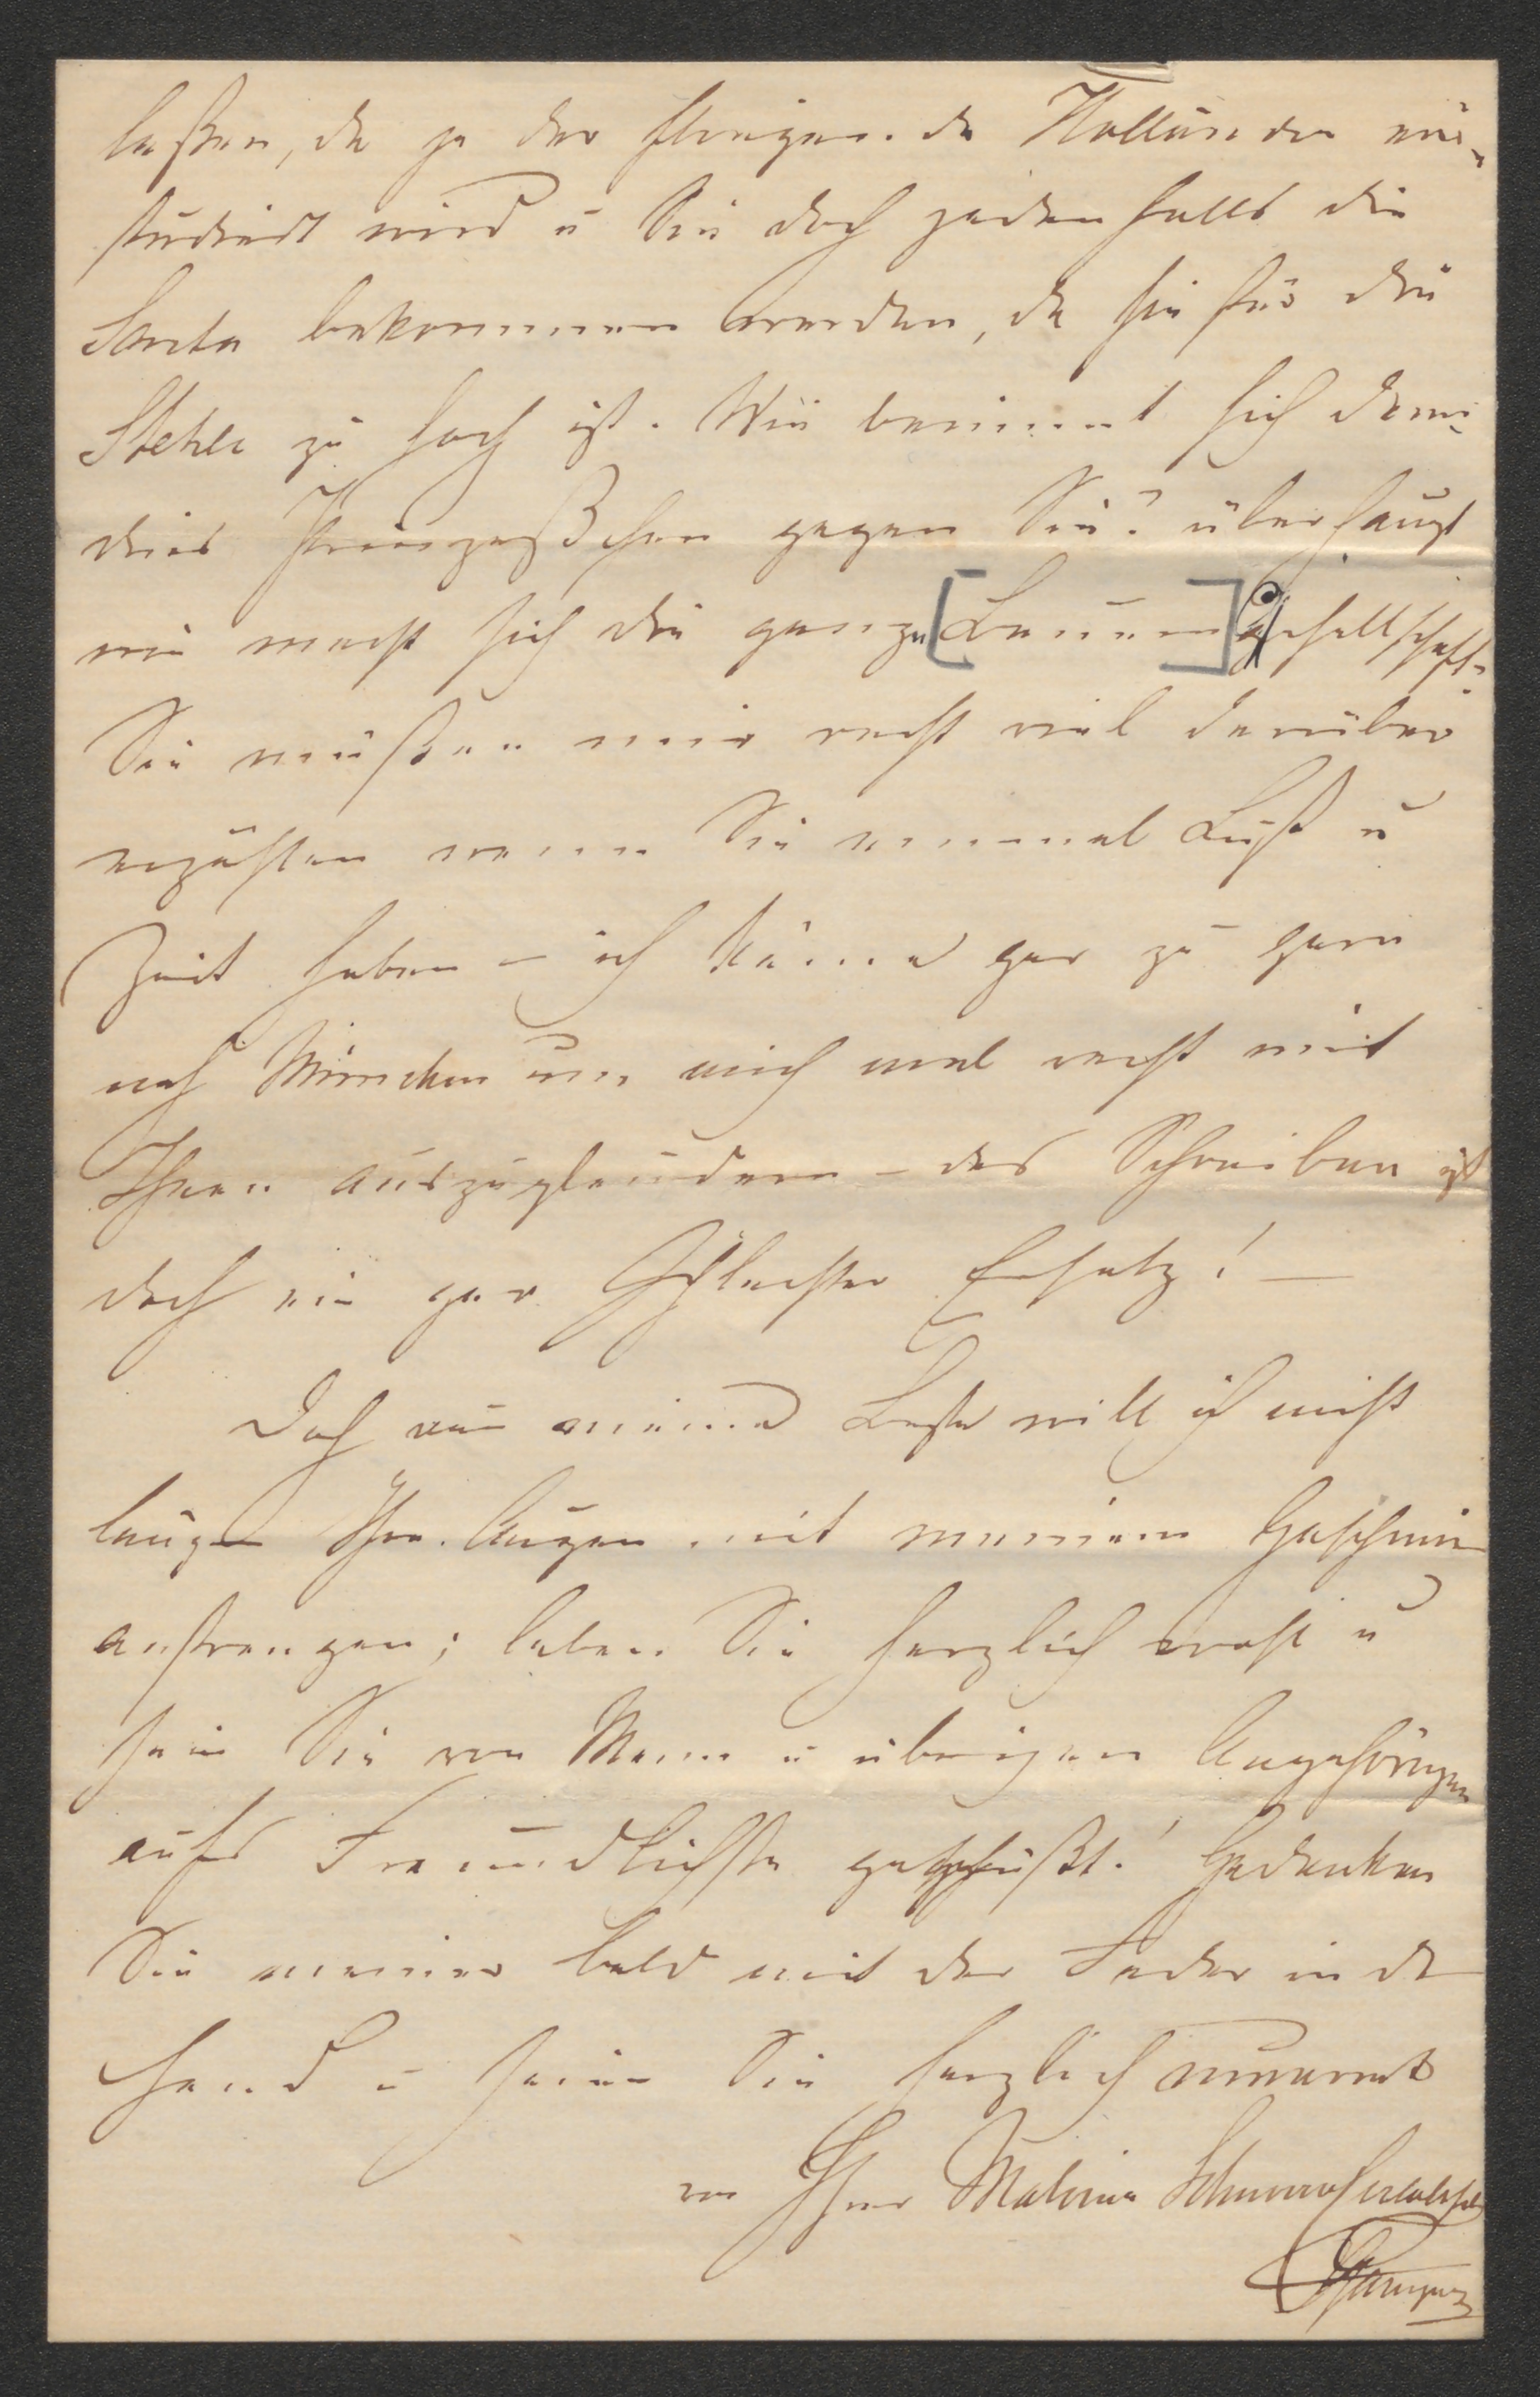 laßen, da ja der fliegende Holländer ein-
studiert wird u Sie doch jedenfalls die
Senta bekommen werden, da sie für die
Stehle zu hoch ist. Wie benimmt sich denn
dies Prinzeßchen gegen Sie? überhaupt
wie macht sich die ganze [Lausen] gesellschaft?
Sie müßen mir recht viel darüber
erzählen wenn Sie einmal Lust u
Zeit haben – ich käme gar zu gern
nach München um mich mal recht mit
Ihnen auszuplaudern – das Schreiben ist
doch ein gar schlechter Ersatz! –
Doch nun meine Beste will ich nicht
länger Ihre Augen mit meinem Geschmier
anstrengen; leben Sie herzlich wohl u
sein Sie von Mama u übrigen Angehörigen
aufs Freundlichste gegrüßt! Gedenken
Sie meiner bald mit der Feder in der
Hand u seien Sie herzlich umarmt
von Ihrer Malvina Schnorr